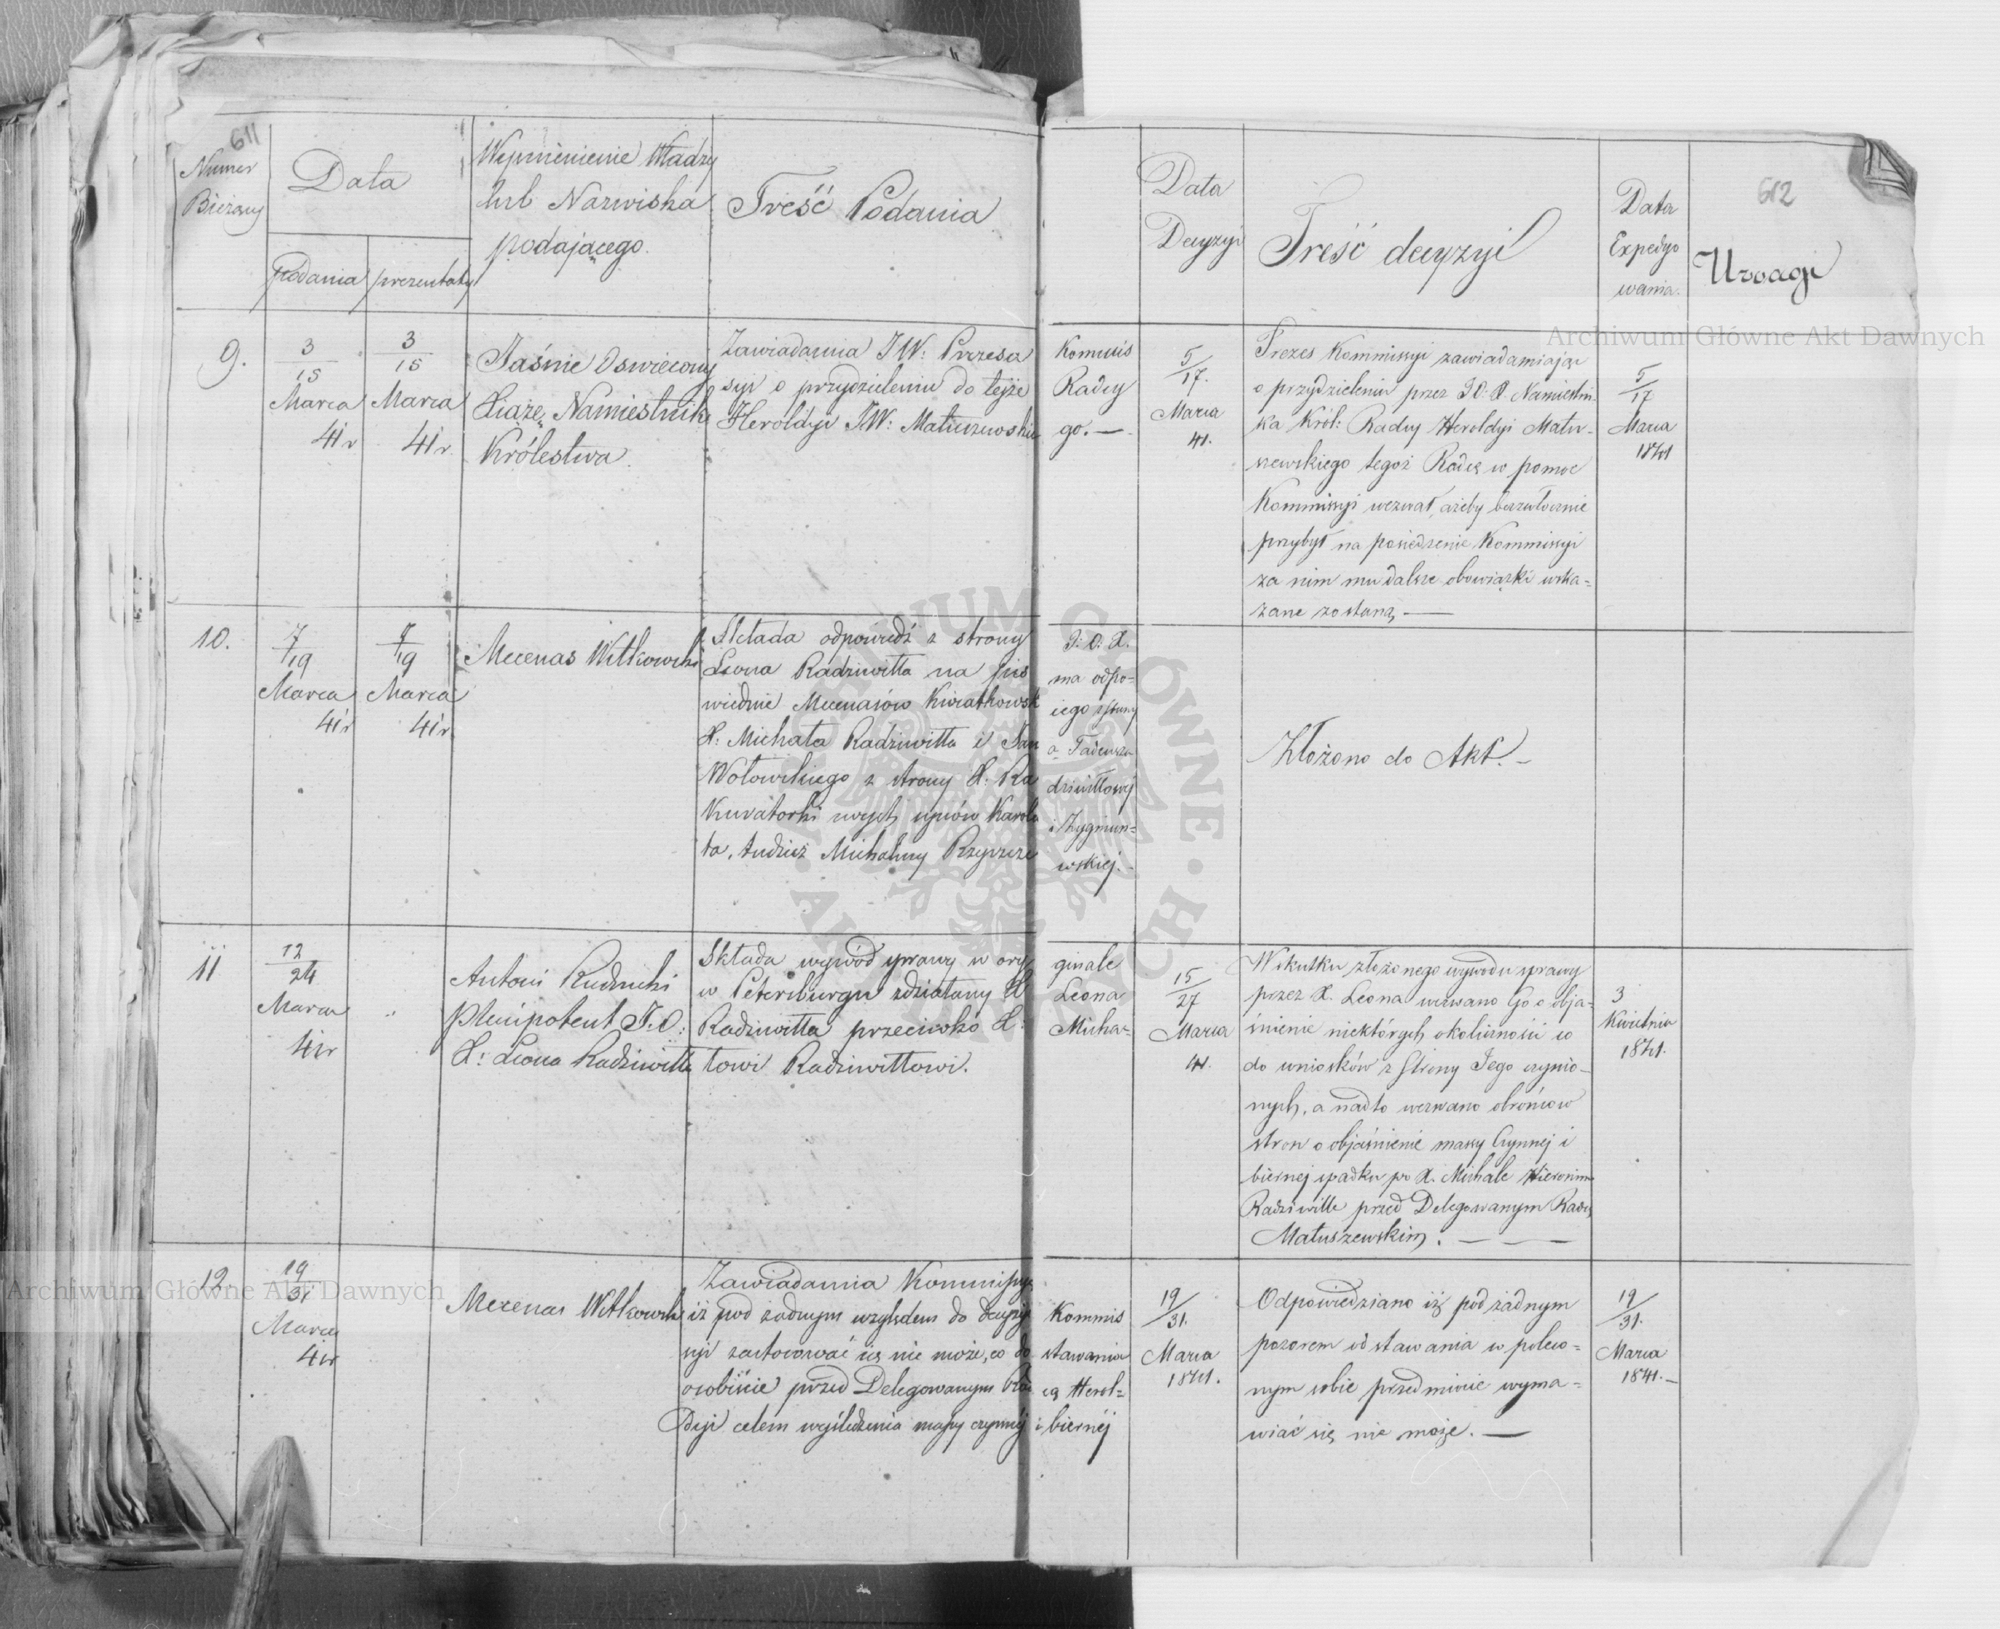 611
Numer
Bieżący
Data
podania
prezentaty
Wymienienie Władzy
lub Nazwiska
podającego.
Treść Podania
Data
Decyzyi
Treść decyzyi
Data
Expedyo
wania.
612
Uwagi
9.
3/15
Marca
41 r
3/15
Marca
41 r.
Jaśnie Oświecony
Xiąże Namiestnik
Królestwa
Zawiadamia JW: Prezesa Komniis
syi o przydzieleniu do tejże Radcy
Heroldyi JW: Matuszewskie go. —
5/17.
Marca
41.
Prezes Kommissyi zawiadamiając
o przydzieleniu przez JO: X. Namiestni-
ka Król: Radcy Heroldyi Matu-
szewskiego tegoż Radcę w pomoc
Kommissyi wezwał, ażeby bezzwłocznie
przybył na posiedzenie Kommissyi
za nim mu dalsze obowiązki wska-
zane zostaną. —
5/17
Marca
1841
10.
7/19
Marca
41 r
7/19
Marca
41 r.
Mecenas Witkowski
Składa odpowiedź z strony J: O: X.
Leona Radziwiłła na pis ma odpo-
wiednie Mecenasów Kwiatkowsk iego z strony
X: Michała Radziwiłła i Jan a Tadeusza
Wołowskiego z strony X: Ra dziwiłłowej
Kuratorki swych synów Karola i Zygmun-
ta, tudzież Michaliny Rzyszcze wskiej.
Złożono do Akt. —
11
12/24
Marca
41 r
"
Antoni Rudnicki
Plenipotent J. O:
X: Leona Radziwiłła
Składa wywód sprawy w ory ginale
w Petersburgu zdziałany X Leona
Radziwiłła przeciwko X: Micha-
łowi Radziwiłłowi.
15/27
Marca
41.
W skutku złożonego wywodu sprawy
przez X. Leona wezwano Go o obja-
śnienie niektórych okoliczności co
do wniosków z Strony Jego czynio-
nych, a nadto wezwano obrońców
stron o objaśnienie massy Czynnej i
biernej spadku po X. Michale Hieronim
Radziwille przed Delegowanym Radcą
Matuszewskim. — — —
3
Kwietnia
1841.
12.
19/31
Marca
41 r
Mecenas Witkowski
Zawiadamia Kommissyą
iż pod żadnym względem do decyzyi Kommis
syi zastosować się nie może, co do stawania
osobiście przed Delegowanym Rad cą Herol-
dyi celem wyśledzenia massy czynnéj i biernéj
19/31.
Marca
1841.
Odpowiedziano iż pod żadnym
pozorem od stawania w poleco-
nym sobie przedmiocie wyma-
wiać się nie może. —
19/31.
Marca
1841. —
Archiwum Główne Akt Dawnych
Archiwum Główne Akt Dawnych
ARCHIWUM GŁÓWNE AKT DAWNYCH